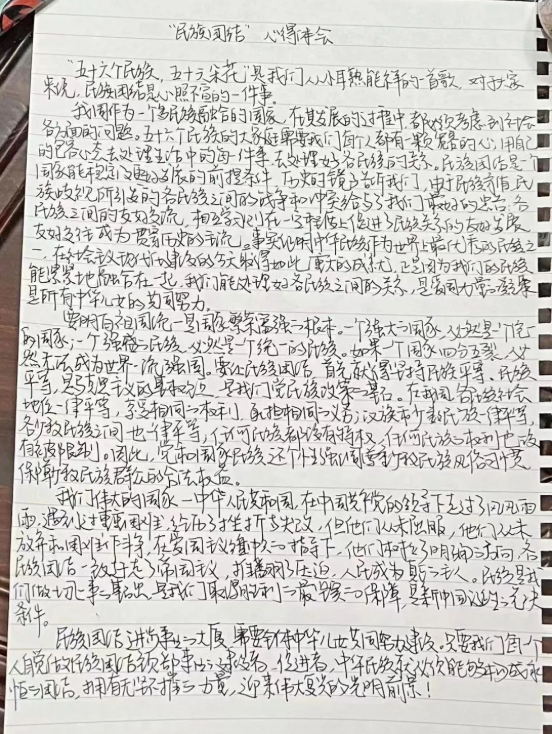 “民族团结”心得体会
“五十六个民族，五十六朵花”是我们从小耳熟能详的一首歌，对于大家
来说，民族团结是心照不宣的一件事。
我国作为一个多民族融合的国家，在其发展的过程中，都必须考虑到社会
各方面的问题。五十六个民族的大家庭需要我们每个人都有一颗宽容的心，用自己
的包容心去处理生活中的每一件事，去处理好各民族的关系。民族团结是一个
国家能稳定的更好的发展的前提条件，历史的镜子告诉我们，由于民族矛盾民
族歧视所引发的各民族之间的战争和冲突给予了我们最好的忠告，各
民族之间的友好交流，相互学习则在一定程度上促进了民族关系的友好发展，
友好交往成为贯穿历史的主流。事实证明中华民族作为世界上最优秀的民族之
一，在社会主义现代化建设的今天取得如此重大的成就，正是因为我们的民族
能紧紧地融合在一起，我们能处理好各民族之间的关系，是
是所有中华儿女的共同努力。
要明白祖国统一是国家繁荣富强的根本。一个强大的国家，必然是一个统一
的国家，一个强盛的民族，必然是一个统一的民族。如果一个国家四分五裂，必
然无法成为世界一流强国。要让民族团结，首先就得坚持民族平等。民族
平等，是马克思主义的基本观点，是我们党民族政策的基石。在我国各民族社会
地位一律平等，享受相同的权利，承担相同的义务；汉族和少数民族一律平等，
各少数民族之间也一律平等，任何民族都没有特权，任何民族的权利也不
会被限制。因此，党和国家民族还个别强调尊重少数民族风俗习惯
保障少数民族群众的合法权益。
我们伟大的国家——中华人民共和国，在中国共产党的领导下走过了风风雨
雨，遇到过重重困难，经历了挫折与失败，但他们从未屈服，他们从未
放弃和困难作斗争，在爱国主义旗帜的指导下，他们有了明确的方向，各
民族团结一致打走了帝国主义，推翻了压迫，人民成为真的主人。民族是我
们做一切事的基础，是我们取得胜利的最强的保障，是新中国成立的先决
条件。
民族团结进步事业的大厦，需要全体中华儿女共同努力建设。只要我们每一个
人自觉做民族团结进步事业的建设者、促进者，中华民族永
恒的团结，拥有无坚不摧的力量，迎来伟大复兴的光明前景！